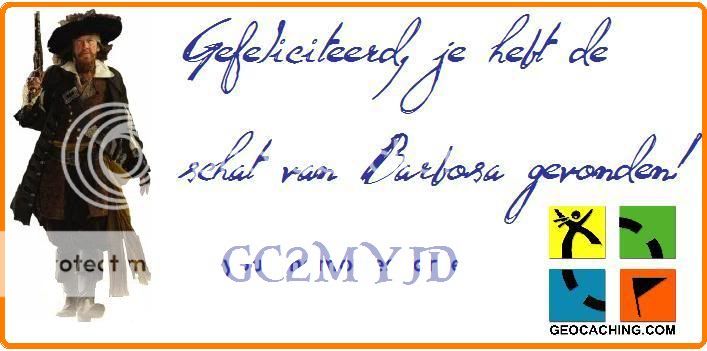 Gefeliciteerd, je hebt de
schat van Barbosa gevonden!
GC2MYJD
GEOCACHING.COM